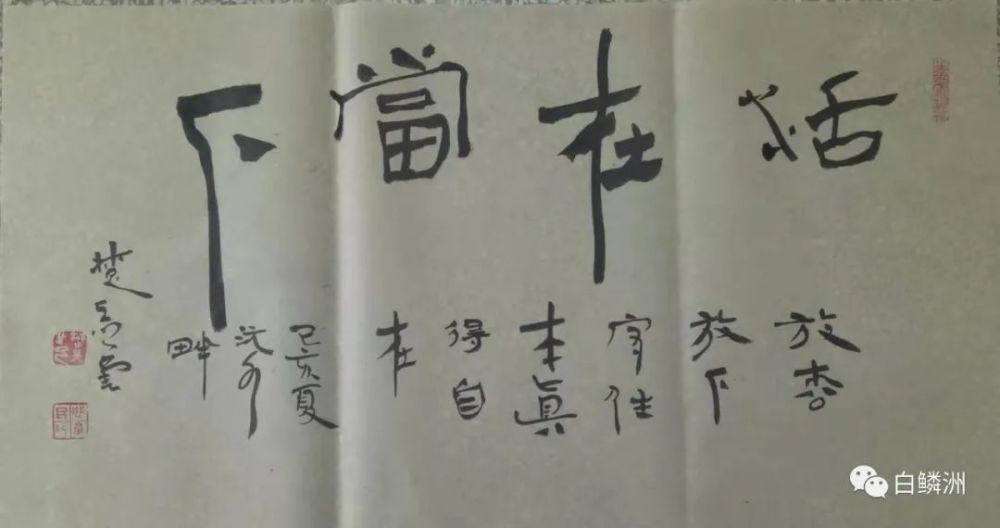 活在當下
放杏
放下
守住
本真
得自
在
己亥夏
沅水
畔
楚
白鳞洲